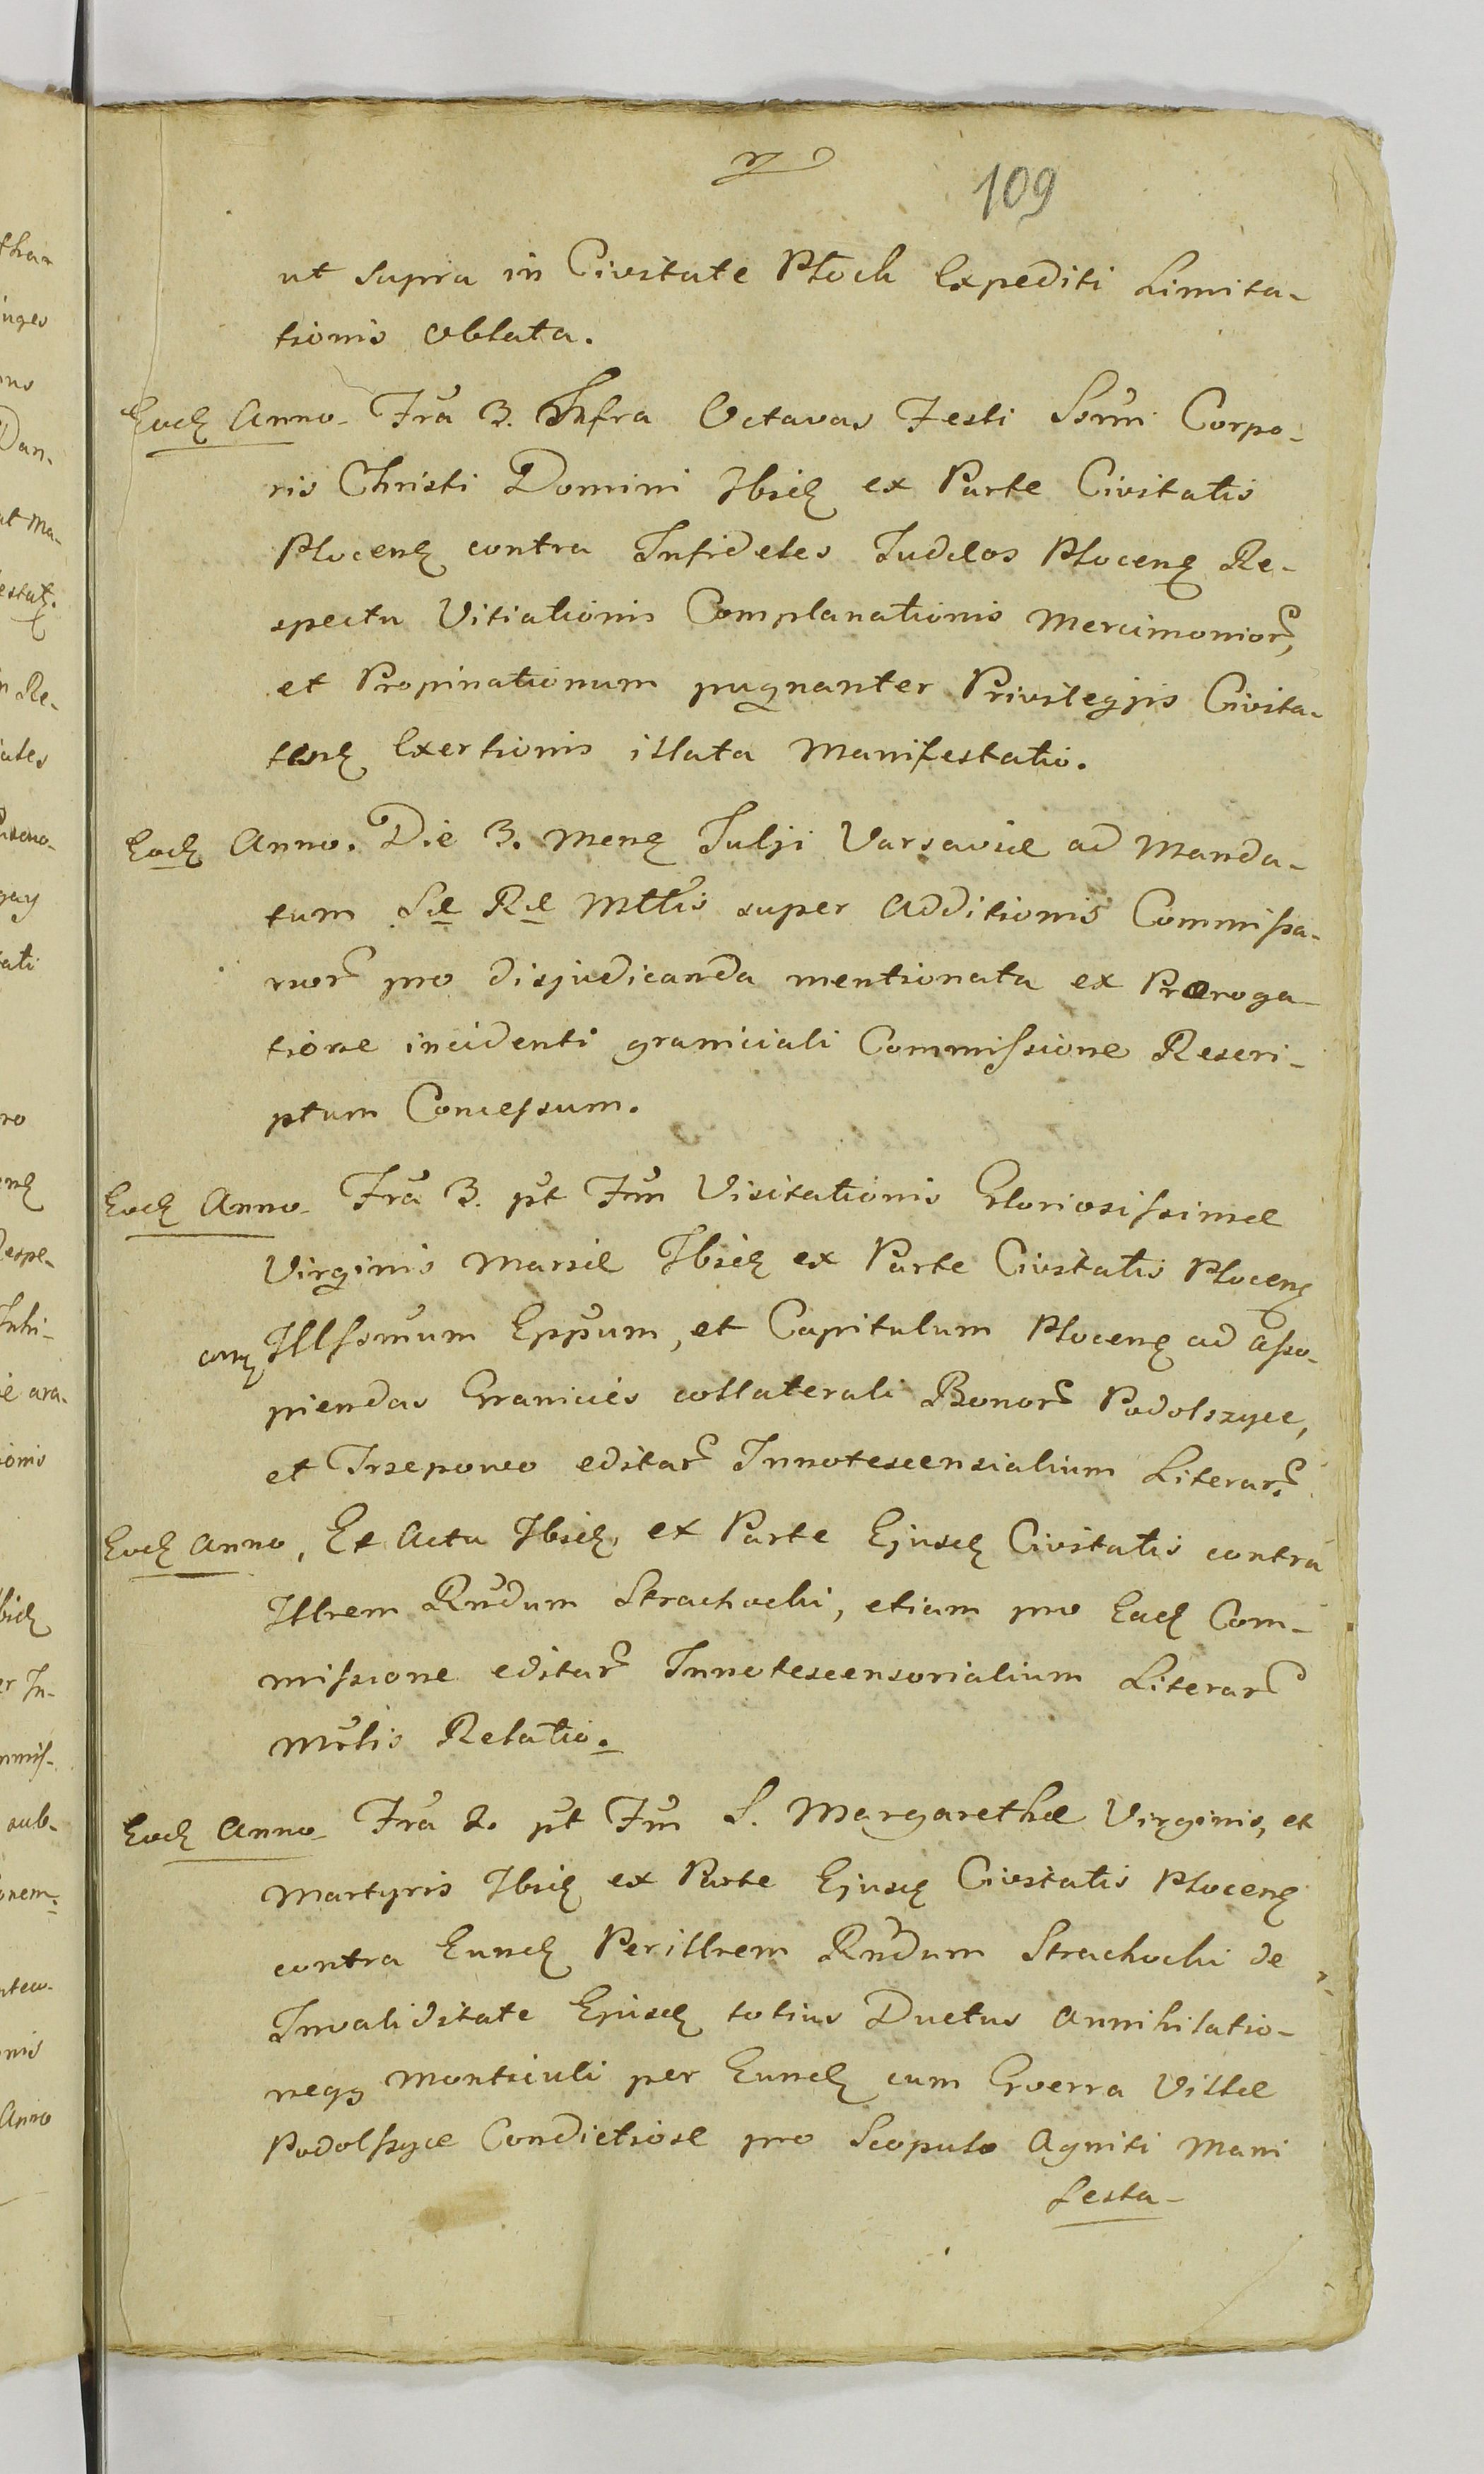 109
ut supra in Civitate Płock Expediti Limita-
tionis oblata.
Eodẽ Anno. Fra 3. Infra Octavas Festi Ssmi Corpo-
ris Christi Domini Ibidẽ ex Parte Civitatis
Plocenẽ contra Infideles Judæos Plocenẽ Re-
spectu Vitiationis Complanationis Mercimonior,
et Propinationum pugnanter Privilegjis Civita-
tenẽ Exertionis illata Manifestatio.
Eodẽ Anno. Die 3. Menẽ Julji Varsaviæ ad Manda-
tum Sæ Ræ Mttis super Additionis Commissa-
rior pro disjudicanda mentionata ex Præroga-
tione incidenti graniciali Commissione Rescri-
ptum Concessum.
Eodẽ Anno. Fra 3. pt Fm Visitationis Gloriosissimæ
Virginis Mariæ Ibidẽ ex Parte Civitatis Plocenẽ
conẽ Illssmum Eppum, et Capitulum Plocenẽ ad asso-
piendas Granicies collaterali Bonor Podolszyce,
et Trzepowo editar Innotescensialium Literar.
Eodẽ Anno, Et Actu Ibidẽ, ex Parte Ejusdẽ Civitatis contra
Illrem Rndum Strachocki, etiam pro Eadẽ Com-
missione editar Innotescensorialium Literar
Mrlis Relatio.
Eodẽ Anno. Fra 2. pt Fm S. Margarethæ Virginis, et
Martyris Ibidẽ ex Parte Ejusdẽ Civitatis Plocenẽ
contra Eundẽ Perillrem Rndum Strachocki de
Invaliditate Ejusdẽ totius Ductus Annihilatio-
neqz Monticuli per Eundẽ cum Gverra Villæ
Podolszyce Condictiose pro Scopulo Agniti Mani
festa-